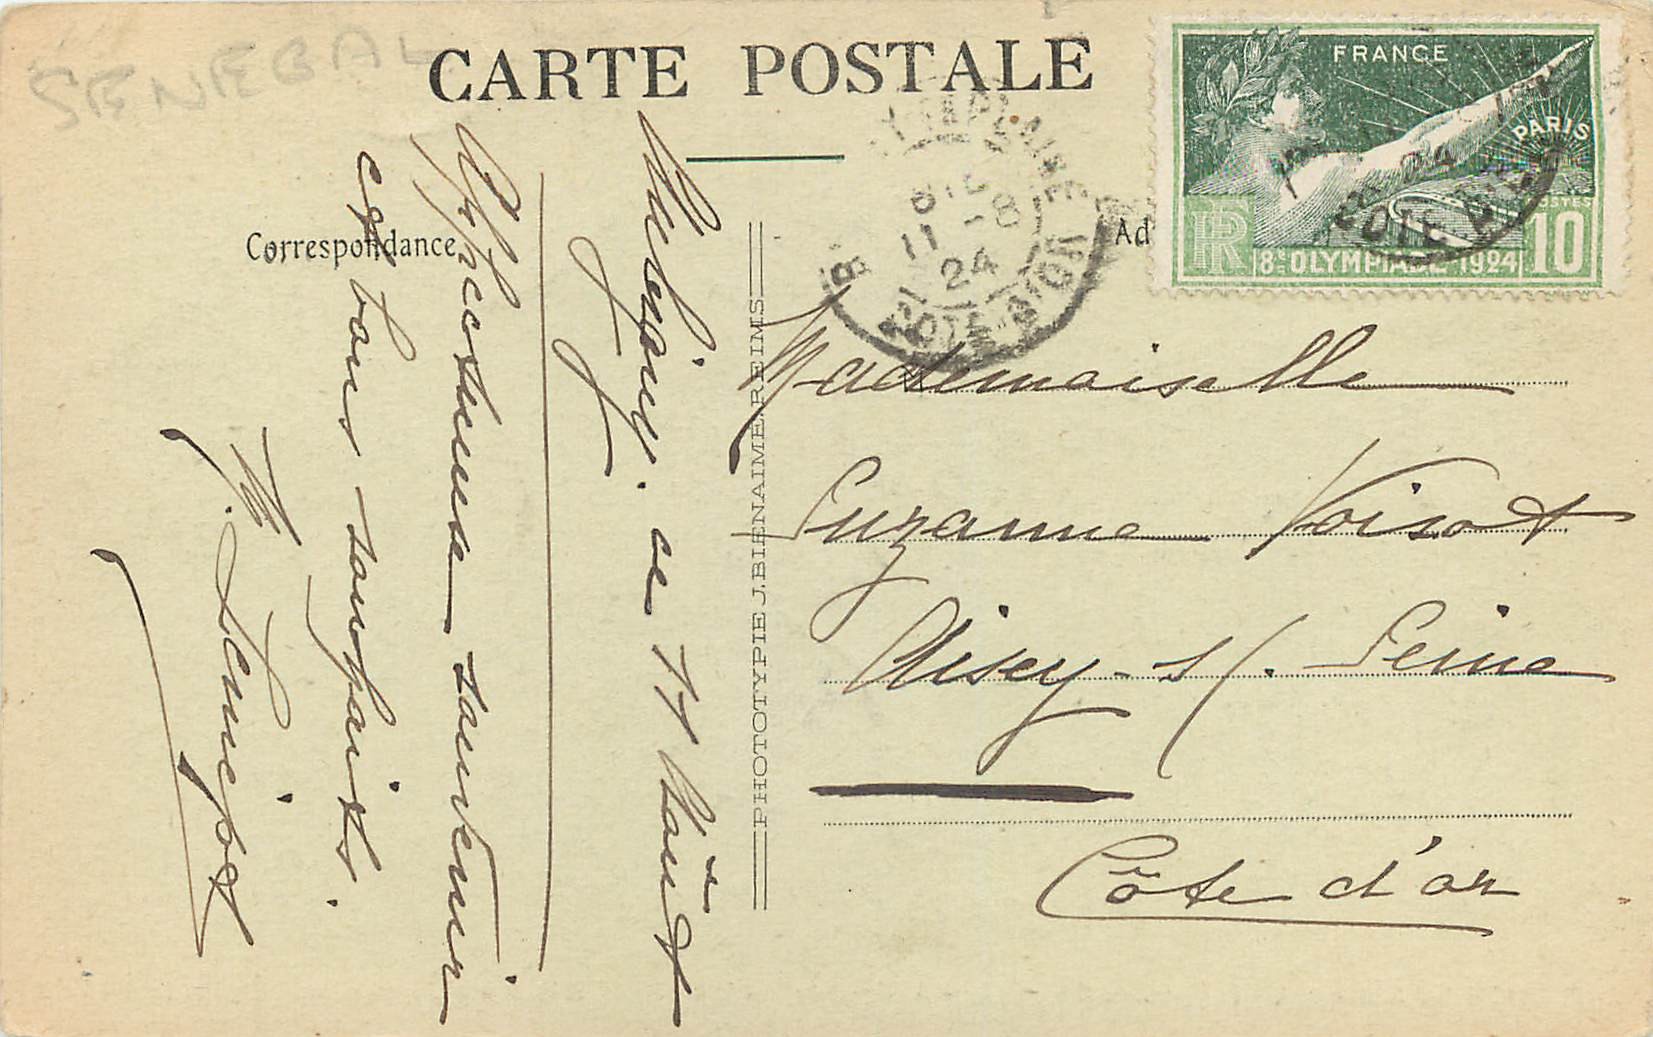 SENEGAL
CARTE POSTALE
Correspondance
Ad
FRANCE
PARIS
POSTES
RF
8e OLYMPIADE 1924
10
11 -8
24
COTE D'OR
ce 11 Août
Affectueux souvenir
et bons souhaits.
PHOTOTYPIE J. BIENAIMÉ, REIMS
Mademoiselle
Suzanne Voisot
Aisey-s/. Seine
Côte d'or